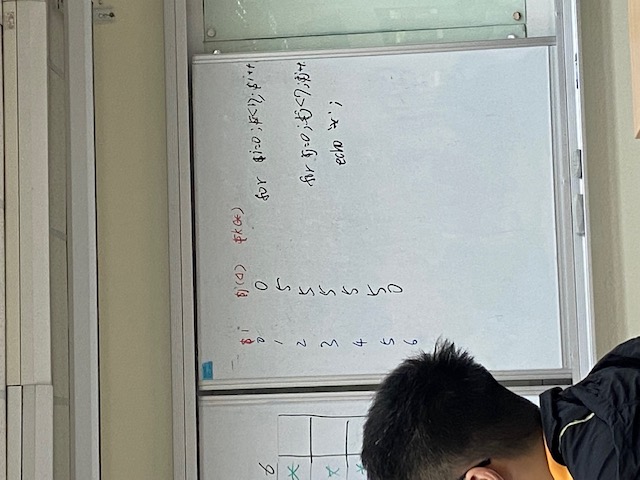 6
$i $j(△) $k(*)
0 0
1 5
2 5
3 5
4 5
5 5
6 0
for $i=0; $i<7; $i++
for $j=0; $j<7; $j++
echo '*';